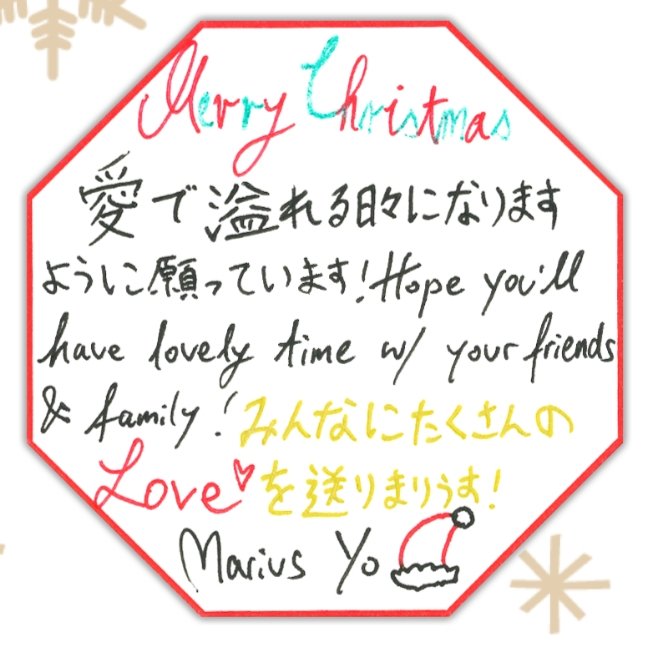 Merry Christmas
愛で溢れる日々になります
ように願っています!Hope you'll
have lovely time w/ your friends
& family!みんなにたくさんの
Love♡を送りまりうす!
Marius Yo